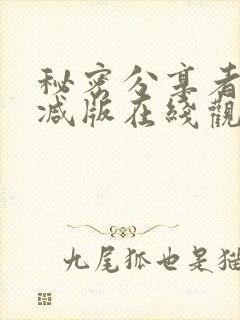 秘密分享者
减版在綫觀
九尾狐也是猫